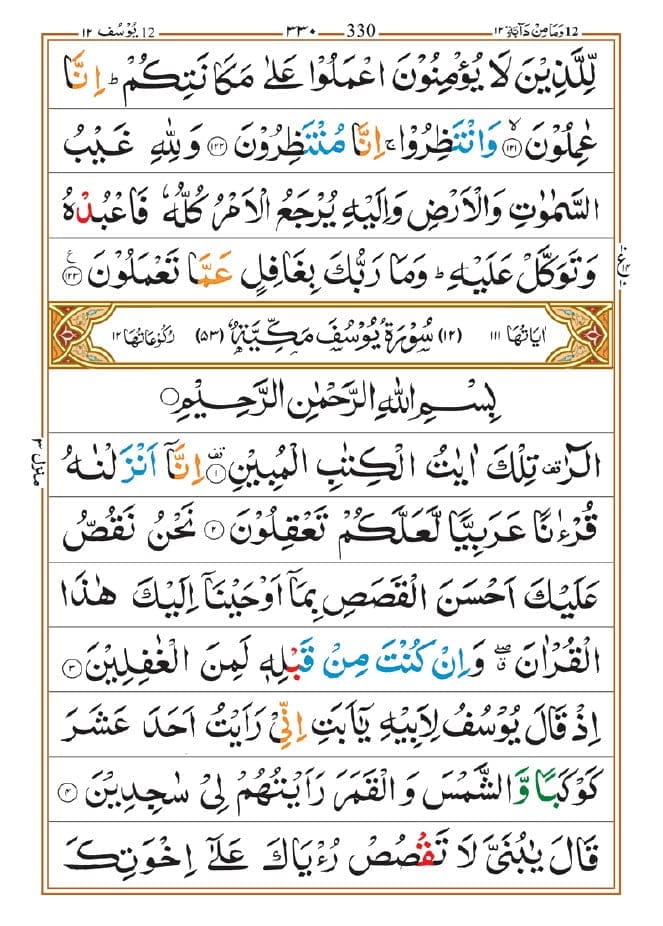 12 وَمَا مِنْ دَآبَّةٍ ١٢ 330 ٣٣٠ 12 يُوْسُف ١٢
لِّلَّذِيْنَ لَا يُؤْمِنُوْنَ اعْمَلُوْا عَلٰى مَكَانَتِكُمْ ؕ اِنَّا
عٰمِلُوْنَ ۙ﴿۱۲۱﴾ وَانْتَظِرُوْا ۚ اِنَّا مُنْتَظِرُوْنَ ﴿۱۲۲﴾ وَلِلّٰهِ غَيْبُ
السَّمٰوٰتِ وَالْاَرْضِ وَاِلَيْهِ يُرْجَعُ الْاَمْرُ كُلُّهٗ فَاعْبُدْهُ
وَتَوَكَّلْ عَلَيْهِ ؕ وَمَا رَبُّكَ بِغَافِلٍ عَمَّا تَعْمَلُوْنَ ﴿۱۲۳﴾ ع
اٰيَاتُهَا ١١١ (١٢) سُوْرَةُ يُوْسُفَ مَكِّيَّةٌ (٥٣) رُكُوْعَاتُهَا ١٢
بِسْمِ اللّٰهِ الرَّحْمٰنِ الرَّحِيْمِ
الٓرٰ ࣞ تِلْكَ اٰيٰتُ الْكِتٰبِ الْمُبِيْنِ ࣞ ﴿۱﴾ اِنَّاۤ اَنْزَلْنٰهُ
قُرْءٰنًا عَرَبِيًّا لَّعَلَّكُمْ تَعْقِلُوْنَ ﴿۲﴾ نَحْنُ نَقُصُّ
عَلَيْكَ اَحْسَنَ الْقَصَصِ بِمَاۤ اَوْحَيْنَاۤ اِلَيْكَ هٰذَا
الْقُرْاٰنَ ۖۗ وَاِنْ كُنْتَ مِنْ قَبْلِهٖ لَمِنَ الْغٰفِلِيْنَ ﴿۳﴾
اِذْ قَالَ يُوْسُفُ لِاَبِيْهِ يٰۤاَبَتِ اِنِّيْ رَاَيْتُ اَحَدَ عَشَرَ
كَوْكَبًا وَّالشَّمْسَ وَالْقَمَرَ رَاَيْتُهُمْ لِيْ سٰجِدِيْنَ ﴿۴﴾
قَالَ يٰبُنَيَّ لَا تَقْصُصْ رُءْيَاكَ عَلٰۤى اِخْوَتِكَ
منزل ٣